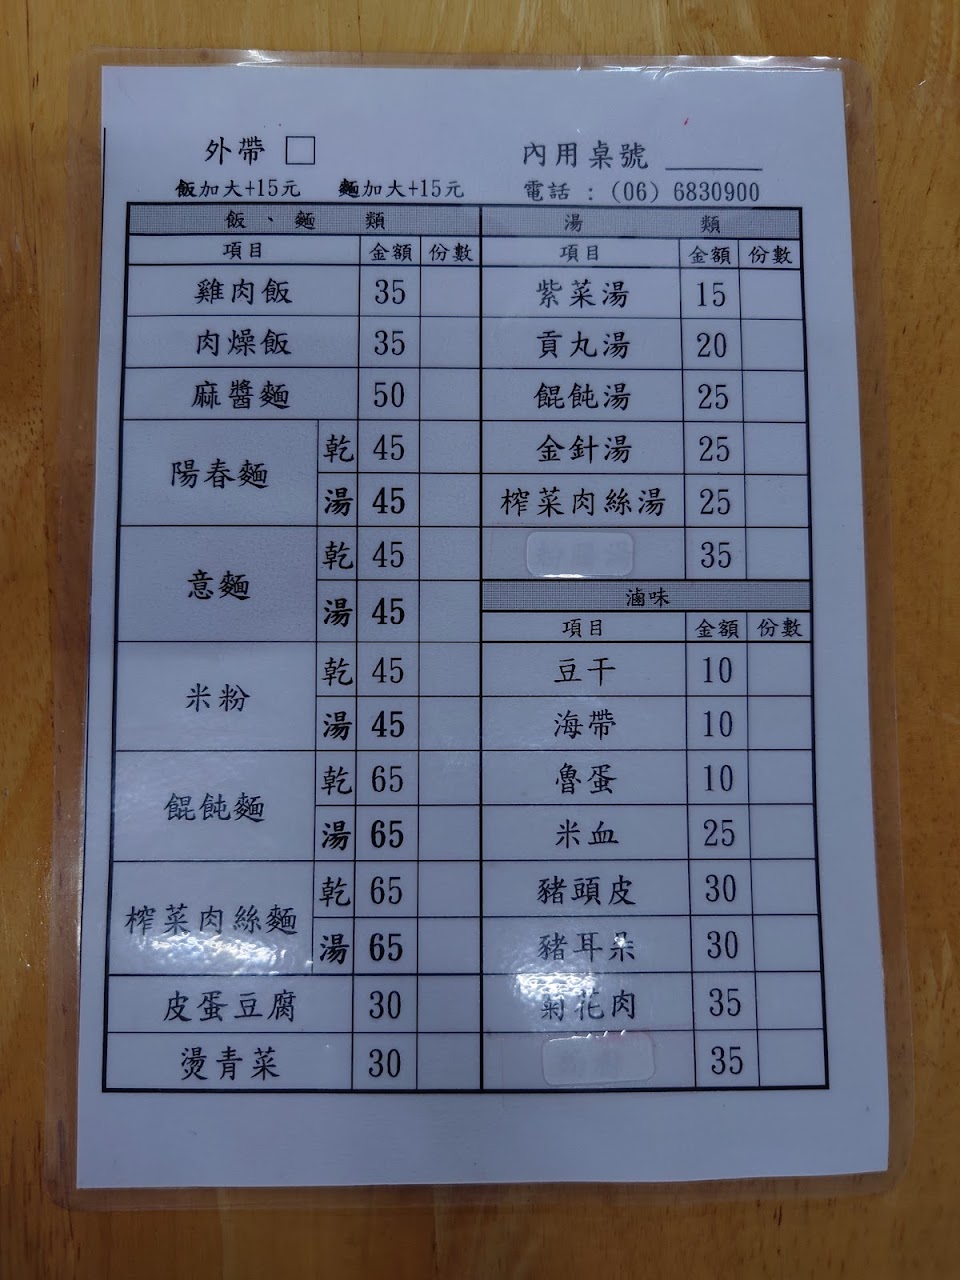 外帶 □
內用桌號
飯加大+15元 麵加大+15元
電話：(06) 6830900
飯、麵 類
項目 金額 份數
雞肉飯 35
肉燥飯 35
麻醬麵 50
陽春麵 乾 45
湯 45
意麵 乾 45
湯 45
米粉 乾 45
湯 45
餛飩麵 乾 65
湯 65
榨菜肉絲麵 乾 65
湯 65
皮蛋豆腐 30
燙青菜 30
湯 類
項目 金額 份數
紫菜湯 15
貢丸湯 20
餛飩湯 25
金針湯 25
榨菜肉絲湯 25
35
滷味
項目 金額 份數
豆干 10
海帶 10
魯蛋 10
米血 25
豬頭皮 30
豬耳朵 30
菊花肉 35
35